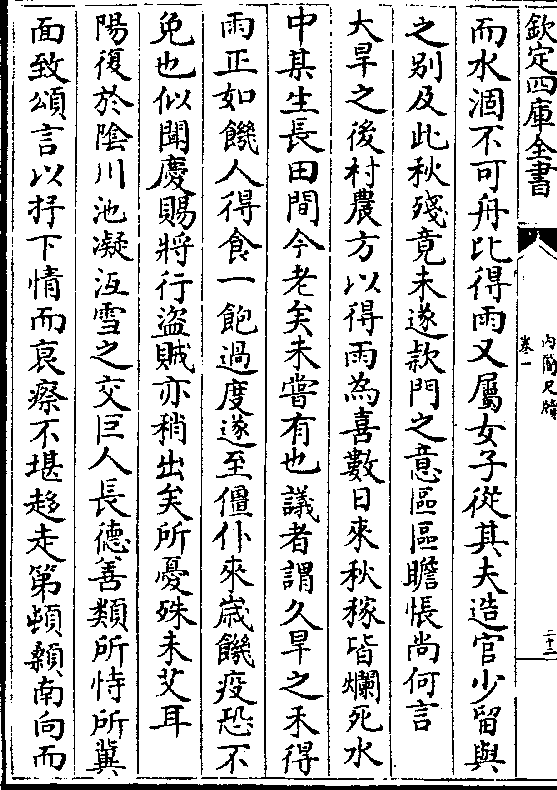 欽定四庫全書
內簡尺牘
卷一
二十二
而水涸不可舟比得雨又屬女子從其夫造官少留與
之别及此秋殘竟未遂款門之意區區瞻悵尚何言
大旱之後村農方以得雨為喜數日來秋稼皆爛死水
中某生長田間今老矣未嘗有也議者謂久旱之禾得
雨正如饑人得食一飽過度遂至僵仆來歲饑疫恐不
免也似聞慶賜將行盜賊亦稍出矣所憂殊未艾耳
陽復於陰川池凝沍雪之交巨人長德善類所恃所冀
面致頌言以抒下情而衰瘵不堪趍走第頓顙南向而